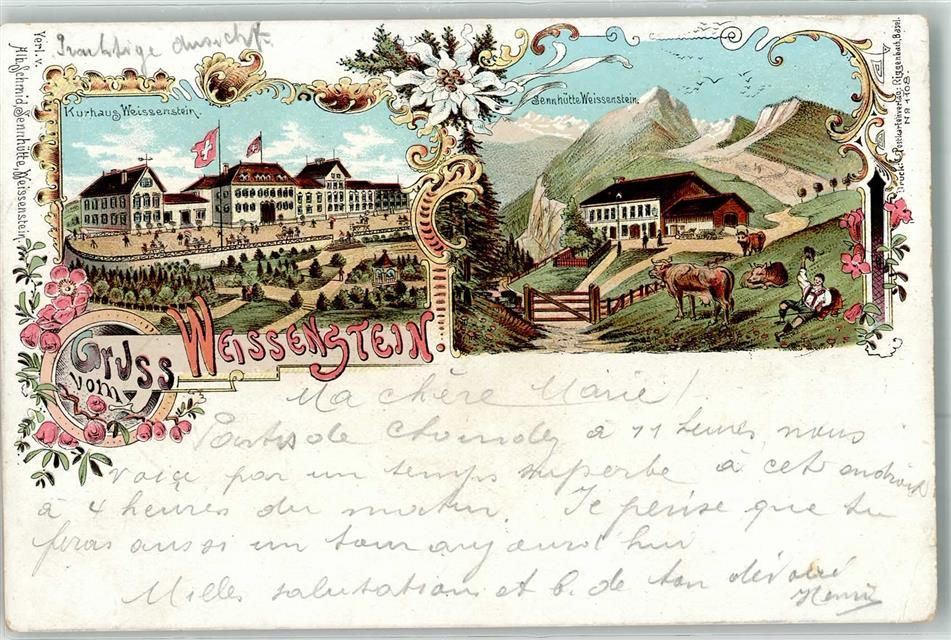 Prachtige Ansicht.
Verl. v. Alb. Schmid, Sennhütte, Weissenstein.
Kurhaus Weissenstein.
Sennhütte Weissenstein.
Druck u. Postkartenverlag: Riggenbach, Basel.
No 1108
Gruss
vom
Weissenstein.
Ma chère Marie!
Partis de Choindez à 11 heures, nous
voiçe par un temps superbe à cet endroit
à 4 heures du matin. Je pense que tu
feras aussi un tour aujourd'hui
Milles salutations et b. de ton dévoué
Henri